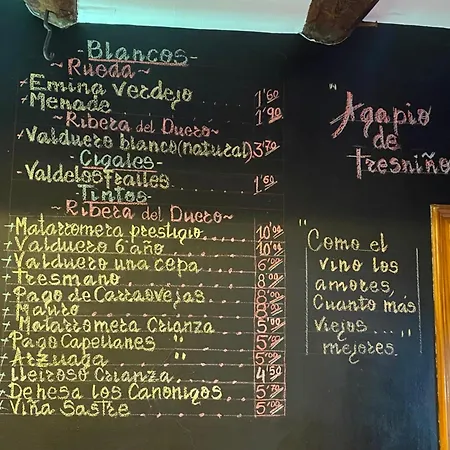 -Blancos-
~Rueda~
Emina verdejo 1'60
Menade 1'90
~Ribera del Duero~
Valduero blanco(natural) 3'70
-Cigales-
-Valdelosfrailes 1'60
-Tintos-
~Ribera del Duero~
Matarromera prestigio 10'00
Valduero 6 año 10'00
Valduero una cepa 6'00
Tresmano 8'00
Pago de Carraovejas 8'00
Mauro 8'00
Matarromera Crianza 5'00
Pago Capellanes " 5'00
Arzuaga " 5'00
Lleiroso Crianza 4'50
Dehesa los Canonigos 5'70
Viña Sastre 5'00
"Agapio
de
tresniño
"Como el
vino los
amores,
Cuanto mas
viejos...."
mejores.